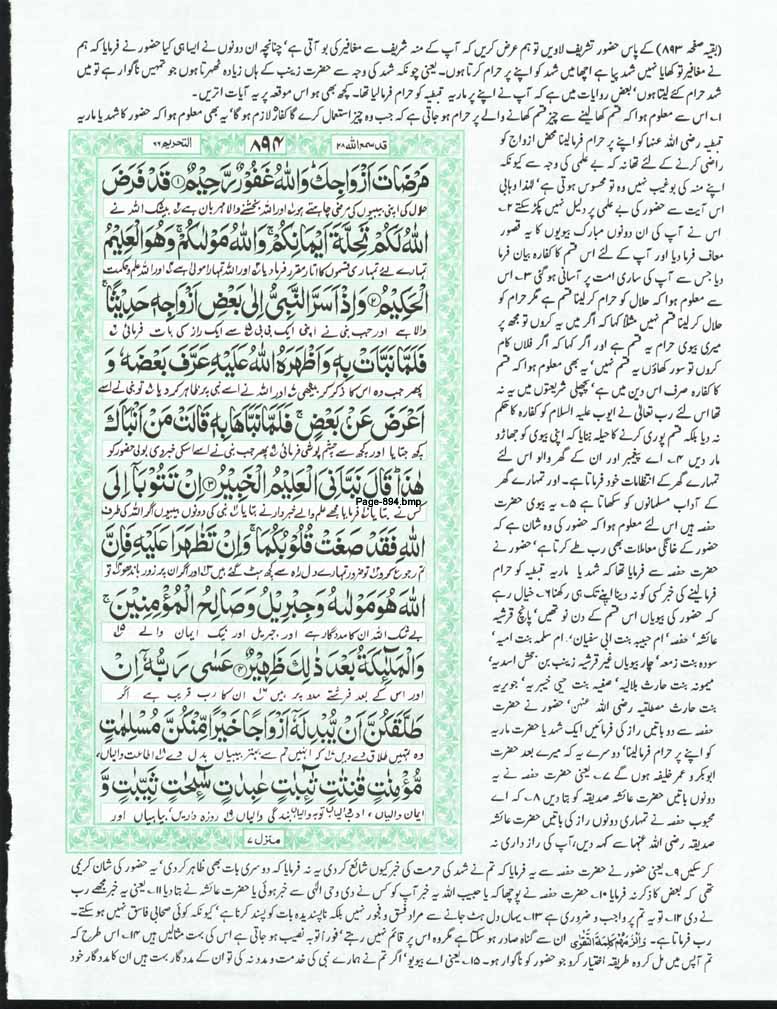 (بقیہ صفحہ ۸۹۳) کے پاس حضور تشریف لاویں تو ہم عرض کریں کہ آپ کے منہ شریف سے مغافیر کی بو آتی ہے' چنانچہ ان دونوں نے ایسا ہی کیا حضور نے فرمایا کہ ہم
نے مغافیر تو کھایا نہیں شہد پیا ہے اچھا میں شہد کو اپنے پر حرام کرتا ہوں۔ یعنی چونکہ شہد کی وجہ سے حضرت زینب کے ہاں زیادہ ٹھہرتا ہوں جو تمہیں ناگوار ہے تو میں
شہد حرام کئے لیتا ہوں' بعض روایات میں ہے کہ آپ نے اپنے پر ماریہ قبطیہ کو حرام فرمالیا تھا۔ کچھ بھی ہو اس موقعہ پر یہ آیات اتریں۔
۱۔ اس سے معلوم ہوا کہ قسم کھا لینے سے چیز قسم کھانے والے پر حرام ہو جاتی ہے کہ جب وہ چیز استعمال کرے گا کفارہ لازم ہو گا' یہ بھی معلوم ہوا کہ حضور کا شہد یا ماریہ
قبطیہ رضی اللہ عنہا کو اپنے پر حرام فرمالینا محض ازواج کو
راضی کرنے کے لئے تھا نہ کہ بے علمی کی وجہ سے کیونکہ
اپنے منہ کی بو غیب نہیں وہ تو محسوس ہوتی ہے' لہذا وہابی
اس آیت سے حضور کی بے علمی پر دلیل نہیں پکڑ سکتے ۲۔
اس نے آپ کی ان دونوں مبارک بیویوں کا یہ قصور
معاف فرما دیا اور آپ کے لئے اس قسم کا کفارہ بیان فرما
دیا جس سے آپ کی ساری امت پر آسانی ہو گئی ۳۔ اس
سے معلوم ہوا کہ حلال کو حرام کر لینا قسم ہے مگر حرام کو
حلال کر لینا قسم نہیں مثلاً کہا کہ اگر میں یہ کروں تو مجھ پر
میری بیوی حرام یہ قسم ہے اور اگر کہا کہ اگر فلاں کام
کروں تو سور کھاؤں یہ قسم نہیں' یہ بھی معلوم ہوا کہ قسم
کا کفارہ صرف اس دین میں ہے' پچھلی شریعتوں میں یہ نہ
تھا اس لئے رب تعالیٰ نے ایوب علیہ السلام کو کفارہ کا حکم
نہ دیا بلکہ قسم پوری کرنے کا حیلہ بتایا کہ اپنی بیوی کو جھاڑو
مار دیں ۴۔ اے پیغمبر اور ان کے گھر والو اس لئے
تمہارے گھر کے انتظامات خود فرماتا ہے۔ اور تمہارے گھر
کے آداب مسلمانوں کو سکھاتا ہے ۵۔ یہ بیوی حضرت
حفصہ ہیں اس لئے معلوم ہوا کہ حضور کی وہ شان ہے کہ
حضور کے خانگی معاملات بھی رب طے کرتا ہے' حضور نے
حضرت حفصہ سے فرمایا تھا کہ شہد یا ماریہ قبطیہ کو حرام
فرمالینے کی خبر کسی کو نہ دینا اپنے تک ہی رکھنا ۶۔ خیال رہے
کہ حضور کی بیویاں اس قسم کے دن نو تھیں' پانچ قرشیہ
عائشہ' حفصہ' ام حبیبہ بنت ابی سفیان' ام سلمہ بنت امیہ'
سودہ بنت زمعہ' چار بیویاں غیر قرشیہ زینب بن جحش اسدیہ'
میمونہ بنت حارث ہلالیہ' صفیہ بنت حیی خیبریہ' جویریہ
بنت حارث مصطلقیہ رضی اللہ عنھن' حضور نے حضرت
حفصہ سے دو باتیں راز کی فرمائیں ایک شہد یا حضرت ماریہ
کو اپنے پر حرام فرمالینا' دوسرے یہ کہ میرے بعد حضرت
ابوبکر و عمر خلیفہ ہوں گے ۷۔ یعنی حضرت حفصہ نے یہ
دونوں باتیں حضرت عائشہ صدیقہ کو بتا دیں ۸۔ کہ اے
محبوب حفصہ نے تمہاری دونوں راز کی باتیں عائشہ
صدیقہ رضی اللہ عنہا سے کہہ دیں' آپ کی راز داری نہ
قد سمع الله ۲۸
۸۹۴
التحريم ۶۶
مَرْضَاتَ اَزْوَاجِكَ وَاللّٰهُ غَفُوْرٌ رَّحِيْمٌ ۱ قَدْ فَرَضَ
حلال کی اپنی بیبیوں کی مرضی چاہتے ہو اور اللہ بخشنے والا مہربان ہے بیشک اللہ نے
اللّٰهُ لَكُمْ تَحِلَّةَ اَيْمَانِكُمْ وَاللّٰهُ مَوْلٰىكُمْ وَهُوَ الْعَلِيْمُ
تمہارے لئے تمہاری قسموں کا اتار مقرر فرما دیا اور اللہ تمہارا مولیٰ ہے اور اللہ علم و حکمت
الْحَكِيْمُ ۲ وَاِذْ اَسَرَّ النَّبِيُّ اِلٰى بَعْضِ اَزْوَاجِهٖ حَدِيْثًا
والا ہے اور جب نبی نے اپنی ایک بی بی سے ایک راز کی بات فرمائی
فَلَمَّا نَبَّاَتْ بِهٖ وَاَظْهَرَهُ اللّٰهُ عَلَيْهِ عَرَّفَ بَعْضَهٗ وَ
پھر جب وہ اس کا ذکر کر بیٹھی اور اللہ نے اسے نبی پر ظاہر کر دیا تو نبی نے اسے
اَعْرَضَ عَنْ بَعْضٍ فَلَمَّا نَبَّاَهَا بِهٖ قَالَتْ مَنْ اَنْۢبَاَكَ
کچھ جتایا اور کچھ سے چشم پوشی فرمائی پھر جب نبی نے اسے اسکی خبر دی بولی حضور کو
هٰذَا قَالَ نَبَّاَنِيَ الْعَلِيْمُ الْخَبِيْرُ ۳ اِنْ تَتُوْبَا اِلَى
Page-894.bmp
کس نے بتایا فرمایا مجھے علم والے خبردار نے بتایا نبی کی دونوں بیبیو اگر اللہ کی طرف
اللّٰهِ فَقَدْ صَغَتْ قُلُوْبُكُمَا وَاِنْ تَظٰهَرَا عَلَيْهِ فَاِنَّ
تم رجوع کرو تو ضرور تمہارے دل راہ سے کچھ ہٹ گئے ہیں اور اگر ان پر زور باندھو تو
اللّٰهَ هُوَ مَوْلٰىهُ وَجِبْرِيْلُ وَصَالِحُ الْمُؤْمِنِيْنَ
بے شک اللہ ان کا مددگار ہے اور جبریل اور نیک ایمان والے
وَالْمَلٰٓئِكَةُ بَعْدَ ذٰلِكَ ظَهِيْرٌ ۴ عَسٰى رَبُّهٗ اِنْ
اور اس کے بعد فرشتے مدد پر ہیں ان کا رب قریب ہے اگر
طَلَّقَكُنَّ اَنْ يُّبْدِلَهٗ اَزْوَاجًا خَيْرًا مِّنْكُنَّ مُسْلِمٰتٍ
وہ تمہیں طلاق دے دیں کہ انہیں تم سے بہتر بیبیاں بدل دے اطاعت والیاں
مُّؤْمِنٰتٍ قٰنِتٰتٍ تٰٓئِبٰتٍ عٰبِدٰتٍ سٰٓئِحٰتٍ ثَيِّبٰتٍ وَّ
ایمان والیاں، ادب والیاں توبہ والیاں بندگی والیاں روزہ داریں بیاہیاں اور
منزل ۷
کر سکیں ۹۔ یعنی حضور نے حضرت حفصہ سے یہ فرمایا کہ تم نے شہد کی حرمت کی خبر کیوں شائع کر دی یہ نہ فرمایا کہ دوسری بات بھی ظاہر کر دی' یہ حضور کی شان کریمی
تھی کہ بعض کا ذکر نہ فرمایا ۱۰۔ حضرت حفصہ نے پوچھا کہ یا حبیب اللہ یہ خبر آپ کو کس نے دی وحی الٰہی سے خبر ہوئی یا حضرت عائشہ نے بتا دیا ۱۱۔ یعنی یہ خبر مجھے رب
نے دی ۱۲۔ تو یہ تم پر واجب و ضروری ہے ۱۳۔ یہاں دل ہٹ جانے سے مراد فسق و فجور نہیں بلکہ ناپسندیدہ بات کو پسند کرنا ہے' کیونکہ کوئی صحابی فاسق نہیں ہو سکتے۔
رب فرماتا ہے۔ وَاَلْزَمَهُمْ كَلِمَةَ التَّقْوٰى ان سے گناہ صادر ہو سکتا ہے مگر وہ اس پر قائم نہیں رہتے' فوراً توبہ نصیب ہو جاتی ہے اس کی بہت مثالیں ہیں ۱۴۔ اس طرح کہ
تم آپس میں مل کر وہ طریقہ اختیار کرو جو حضور کو ناگوار ہو۔ ۱۵۔ یعنی اے بیویو' اگر تم نے ہمارے نبی کی خدمت و مدد نہ کی تو ان کے مددگار بہت ہیں ان کا مددگار خود